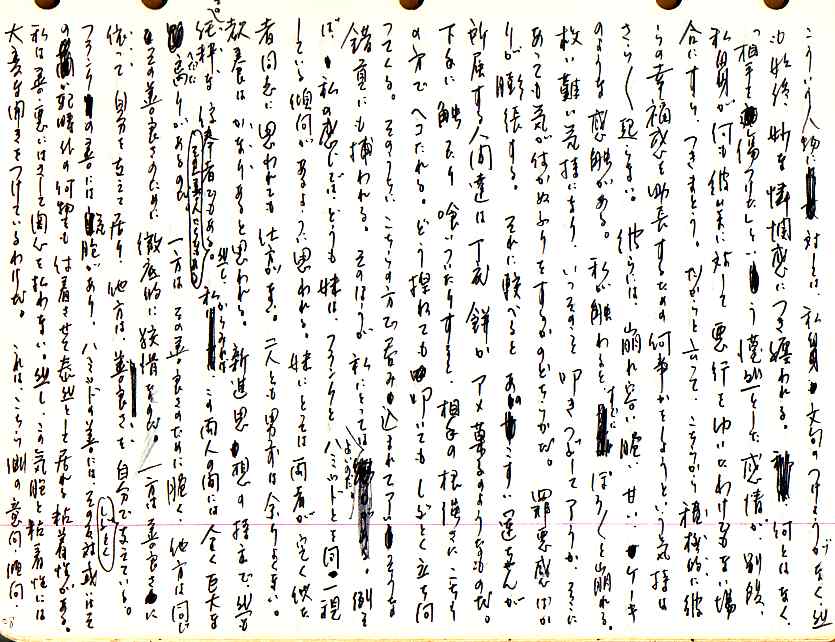 こういう人物に対しては、私自身文句のつけようがなく然
も始終、妙な憐憫感につき纏われる。何とはなく、
「相手を傷つけた」という漠然とした感情が、別段、
私自身が何も彼らに対して悪行をはたいたわけでもない場
合にすら、つきまとう。だからと言って、こちらから積極的に彼
らの幸福感を助長するための何事かをしようという気持は
さらさら起らない。彼らには、崩れ易い、脆い、甘い、ケーキ
のような感触がある。私が触わると、すぐにぼろぼろと崩れる。
救い難い気持になり、いっそのこと叩きつぶしてやろうか、そこに
あっても気が付かぬふりをするかのどちらかだ。罪悪感ばか
りが膨張する。それに較べると、あのこすい連ちゅうが
所属する人間達は丁度餅かアメ菓子のようなものだ。
下手に触ったり喰いついたりすると、相手の根強さにこちら
の方でヘコたれる。どう捏ねても叩いてもしぶとく立ち向
ってくる。そのうちに、こちらの方で呑み込まれてしまいそうな
錯覚にも捕われる。そのほうが私にとってはよいのだ。例え
ば、私の感じでは、どうも妹は、フランクとハミッドとを同一視
している傾向があるように思われる。妹にとっては両者が完く似た
者同志に思われても仕方がない。二人とも男前は余りよくない。
教養はかなりあると思われる。新進思想の持主で、然も
純粋な信奉者でもある。それに善人でもある。然し、私からみれば、この両人の間には全く巨大な
隔りがあるのだ。一方は、その善良さのために脆く、他方は同じ
その善良さのために徹底的に狡猾なのだ。一方は善良さに
依って自分を立てて居り、他方は、善良さを自分で支えている。
フランクの善には気胞があり、ハミッドの善にはその反対或いはそ
の支配時代の何物をも付着させて泰然として居れる粘着性がある。
私は善・悪にはさして関心を払わない。然し、この気胞と粘着性には
大変な関きをつけているわけだ。これは、こちら側の意向、傾向、